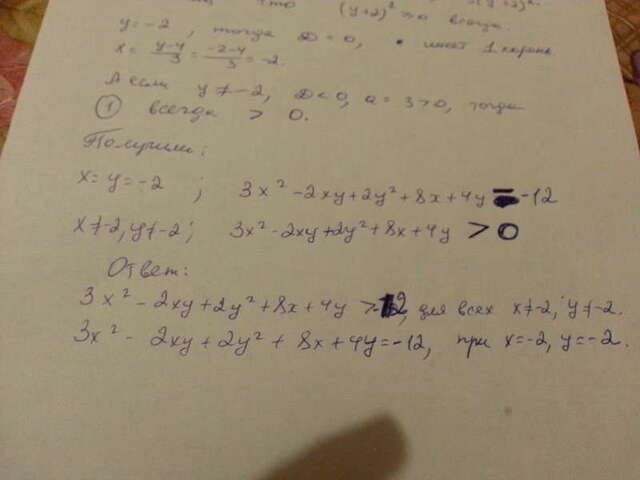 что (y+2)² ≥ 0 всегда.
y = -2, тогда D = 0, • имеет 1 корень
x = (y-4)/3 = (-2-4)/3 = -2.
А если y ≠ -2, D < 0, a = 3 > 0, тогда
① всегда > 0.
Получили:
x = y = -2 ; 3x² - 2xy + 2y² + 8x + 4y = -12
x ≠ -2, y ≠ -2; 3x² - 2xy + 2y² + 8x + 4y > 0
Ответ:
3x² - 2xy + 2y² + 8x + 4y > -12, для всех x ≠ -2, y ≠ -2.
3x² - 2xy + 2y² + 8x + 4y = -12, при x = -2, y = -2.